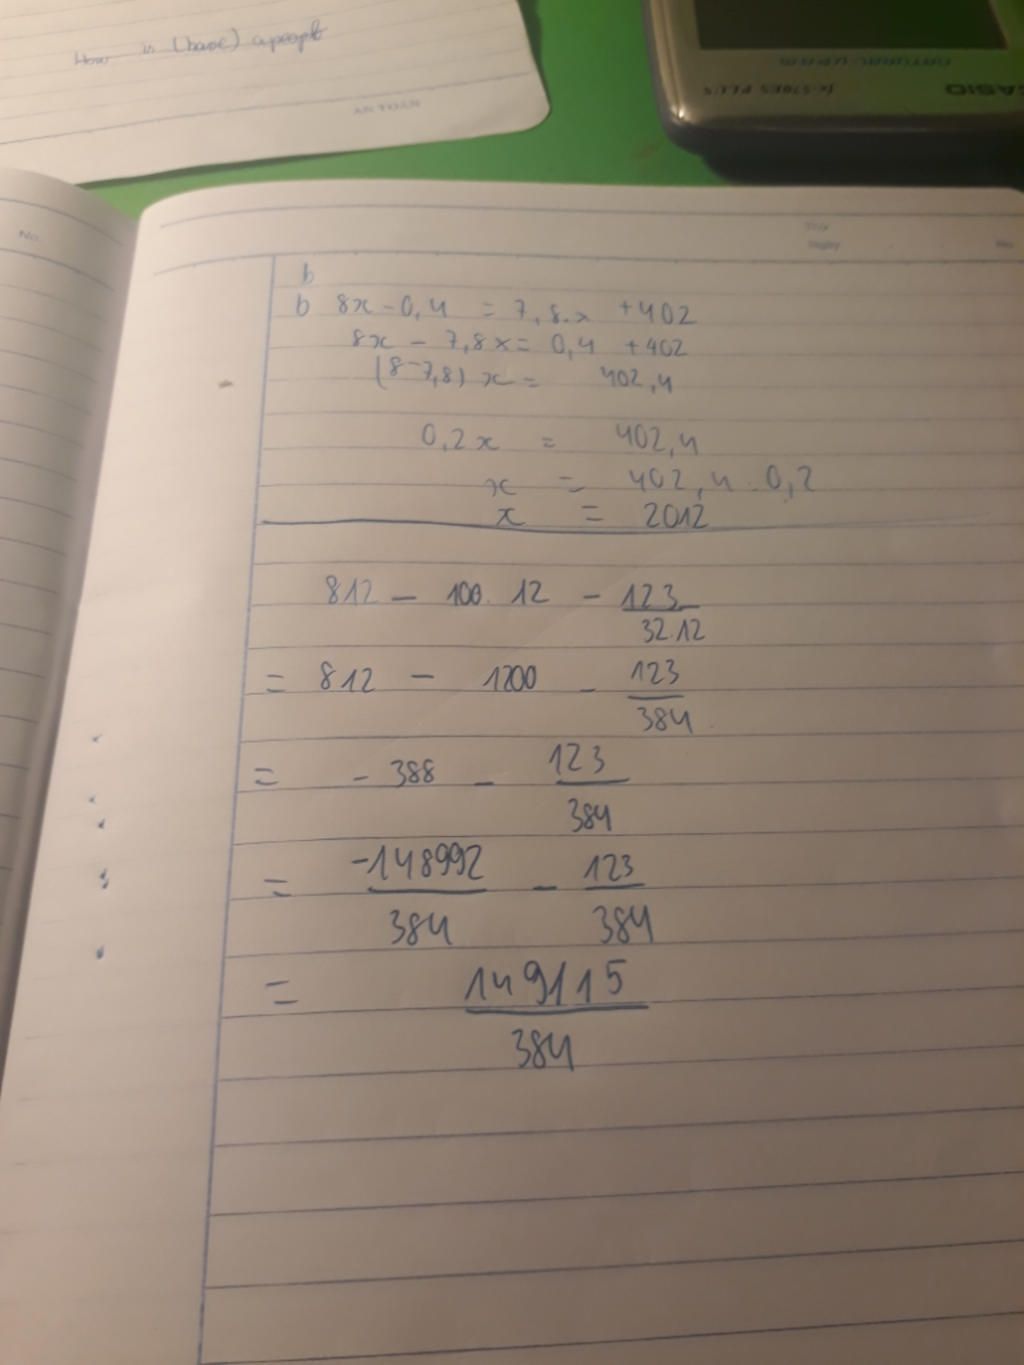 How is (have) a people
CASIO
fx-570ES PLUS
NATURAL-V.P.A.M.
No.
Day
No.
b
b 8x - 0,4 = 7,8.x + 402
8x - 7,8x = 0,4 + 402
(8-7,8) x = 402,4
0,2x = 402,4
x = 402,4 : 0,2
x = 2012
812 - 100. 12 - 123
32.12
= 812 - 1200 - 123
384
= - 388 - 123
384
= -148992 - 123
384 384
= 149115
384